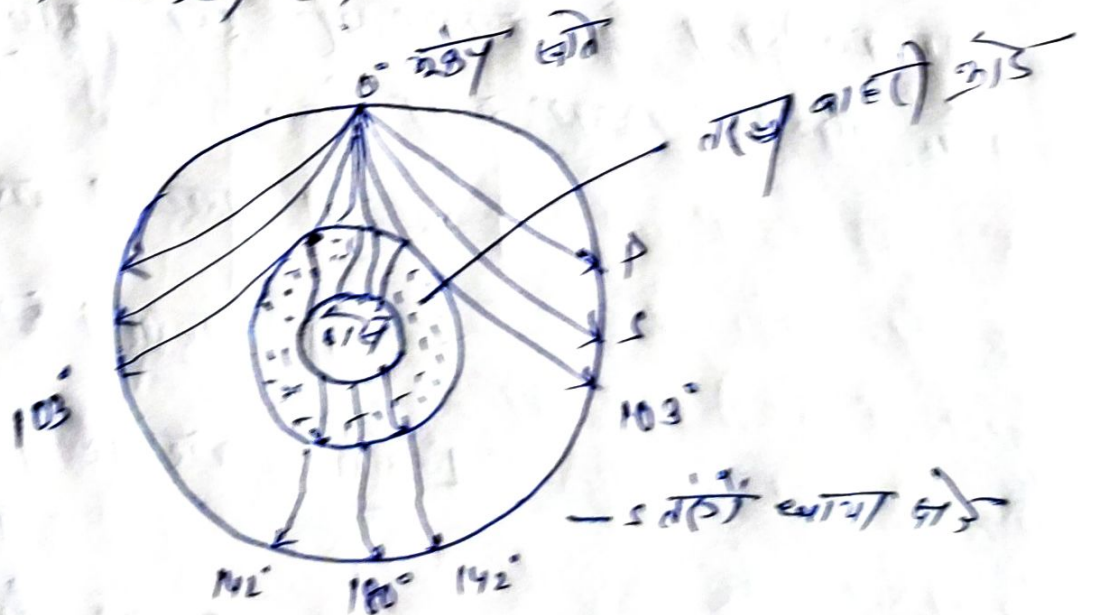 0° भूकंप स्रोत
तरल बाहरी कोर
P
S
103°
103°
S तरंगों छाया क्षेत्र
142° 180° 142°